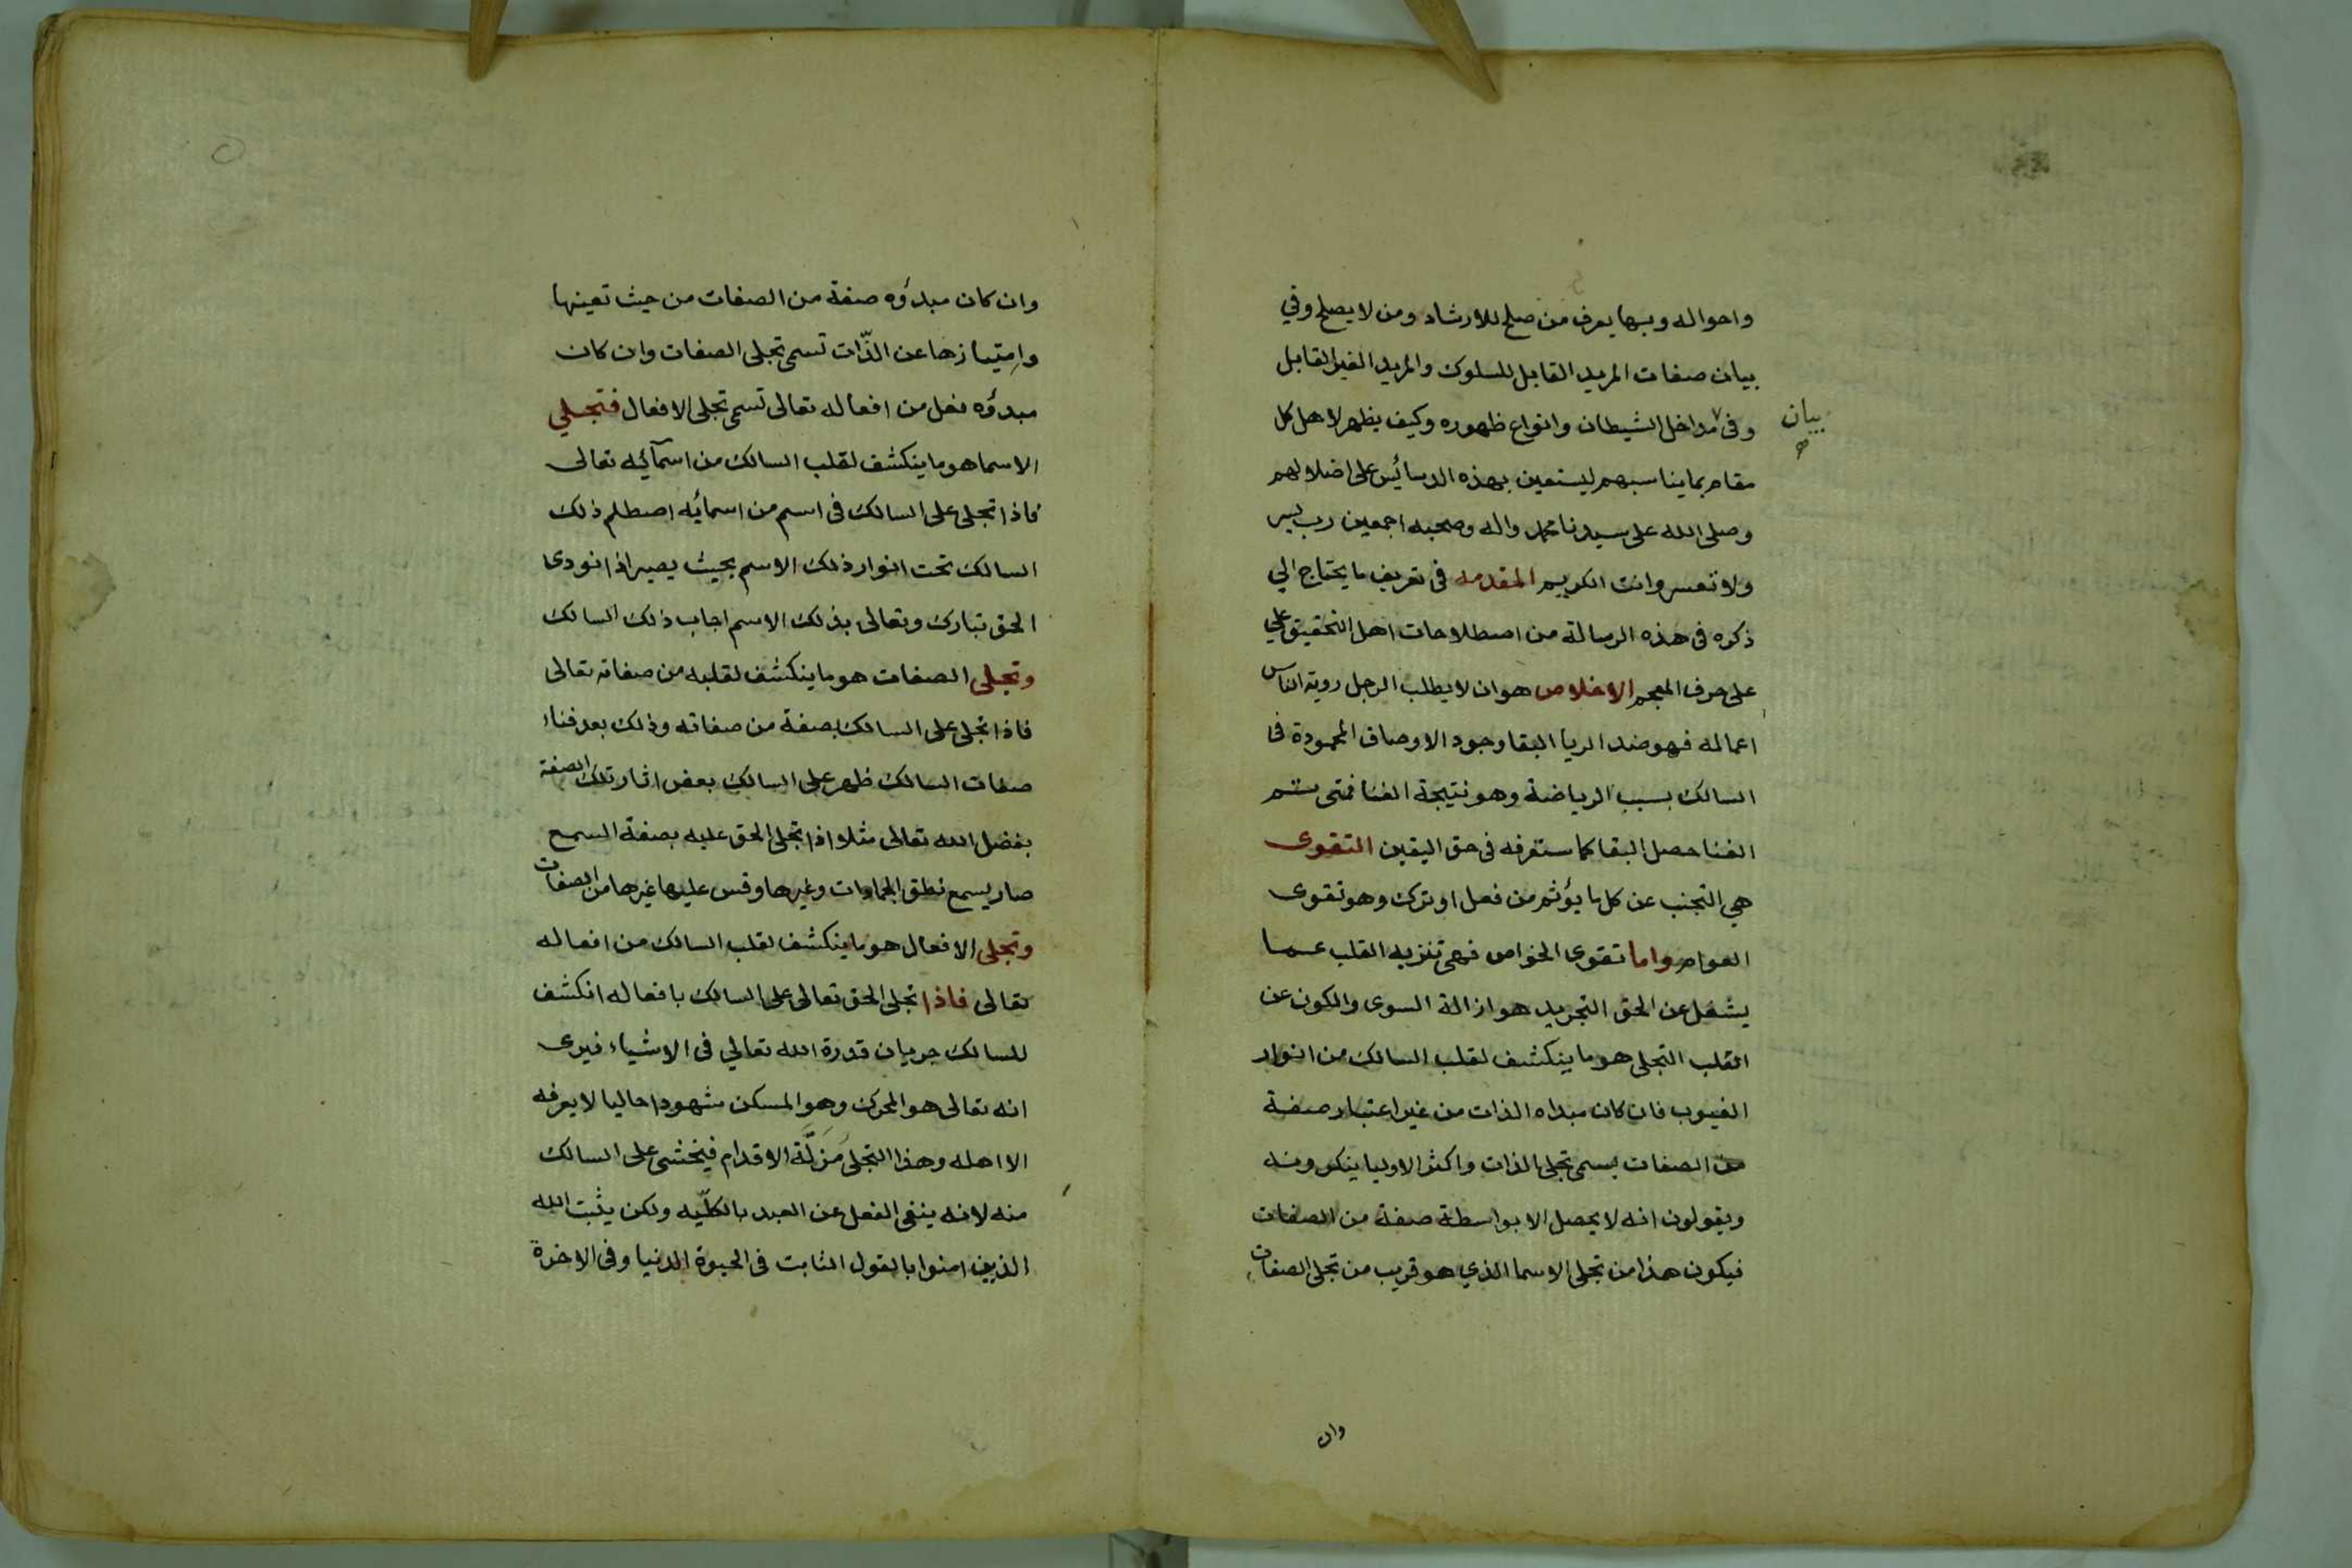 واحواله وبها يعرف من صلح للارشاد ومن لا يصلح وفي
بيان صفات المريد القابل للسلوك والمريد الغير القابل
وفى مداخل الشيطان وانواع ظهوره وكيف يظهر لاهل كل
بيان
صح
مقام بما يناسبهم ليستعين بهذه الدسائس على اضلالهم
وصلى الله على سيدنا محمد واله وصحبه اجمعين رب يسر
ولا تعسر وانت الكريم المقدمه فى تعريف ما يحتاج الي
ذكره فى هذه الرسالة من اصطلاحات اهل التحقيق علي
على حرف المعجم الاخلاص هو ان لا يطلب الرجل روية الناس
اعماله فهو ضد الريا البقا وجود الاوصاف المحمودة فى
السالك بسبب الرياضة وهو نتيجة الفنا فمتى ستم
الفنا حصل البقا كما ستعرفه فى حق اليقين التقوى
هي التجنب عن كل ما يؤثم من فعل او ترك وهو تقوى
العوام واما تقوى الخواص فهى تنزيه القلب عما
يشغل عن الحق التجريد هو ازالة السوى والكون عن
القلب التجلى هو ما ينكشف لقلب السالك من انوار
الغيوب فان كان مبداه الذات من غير اعتبار صفة
من الصفات يسمى تجلى الذات واكثر الاوليا ينكرونه
ويقولون انه لا يحصل الا بواسطة صفة من الصفات
فيكون هذا من تجلى الاسما الذي هو قريب من تجلى الصفات
وان
وان كان مبدؤه صفة من الصفات من حيث تعينها
وامتيازها عن الذّات تسمى تجلى الصفات وان كان
مبدؤه فعل من افعاله تعالى تسمى تجلى الافعال فتجلي
الاسما هو ما ينكشف لقلب السالك من اسمآئيه تعالى
فاذا تجلى على السالك فى اسم من اسمائه اصطلم ذلك
السالك تحت انوار ذلك الاسم بحيث يصير اذا نودى
الحق تبارك وتعالى بذلك الاسم اجاب ذلك السالك
وتجلى الصفات هو ما ينكشف لقلبه من صفاته تعالى
فاذا تجلى على السالك بصفة من صفاته وذلك بعد فناء
صفات السالك ظهر على السالك بعض اثار تلك الصفة
بفضل الله تعالى مثلا اذا تجلى الحق عليه بصفة السمع
صار يسمع نطق الجمادات وغيرها وقس عليها غيرها من الصفات
وتجلى الافعال هو ما ينكشف لقلب السالك من افعاله
تعالى فاذا تجلى الحق تعالى على السالك بافعاله انكشف
للسالك جريان قدرة الله تعالي فى الاشياء فيرى
انه تعالى هو المحرك وهو المسكن شهودا حاليا لا يعرفه
الا اهله وهذا التجلى مَزِلَّة الاقدام فيخشى على السالك
منه لانه ينفى الفعل عن العبد بالكلّيه ولكن يثبت الله
الذين امنوا بالقول الثابت فى الحيوة الدنيا وفى الاخرة